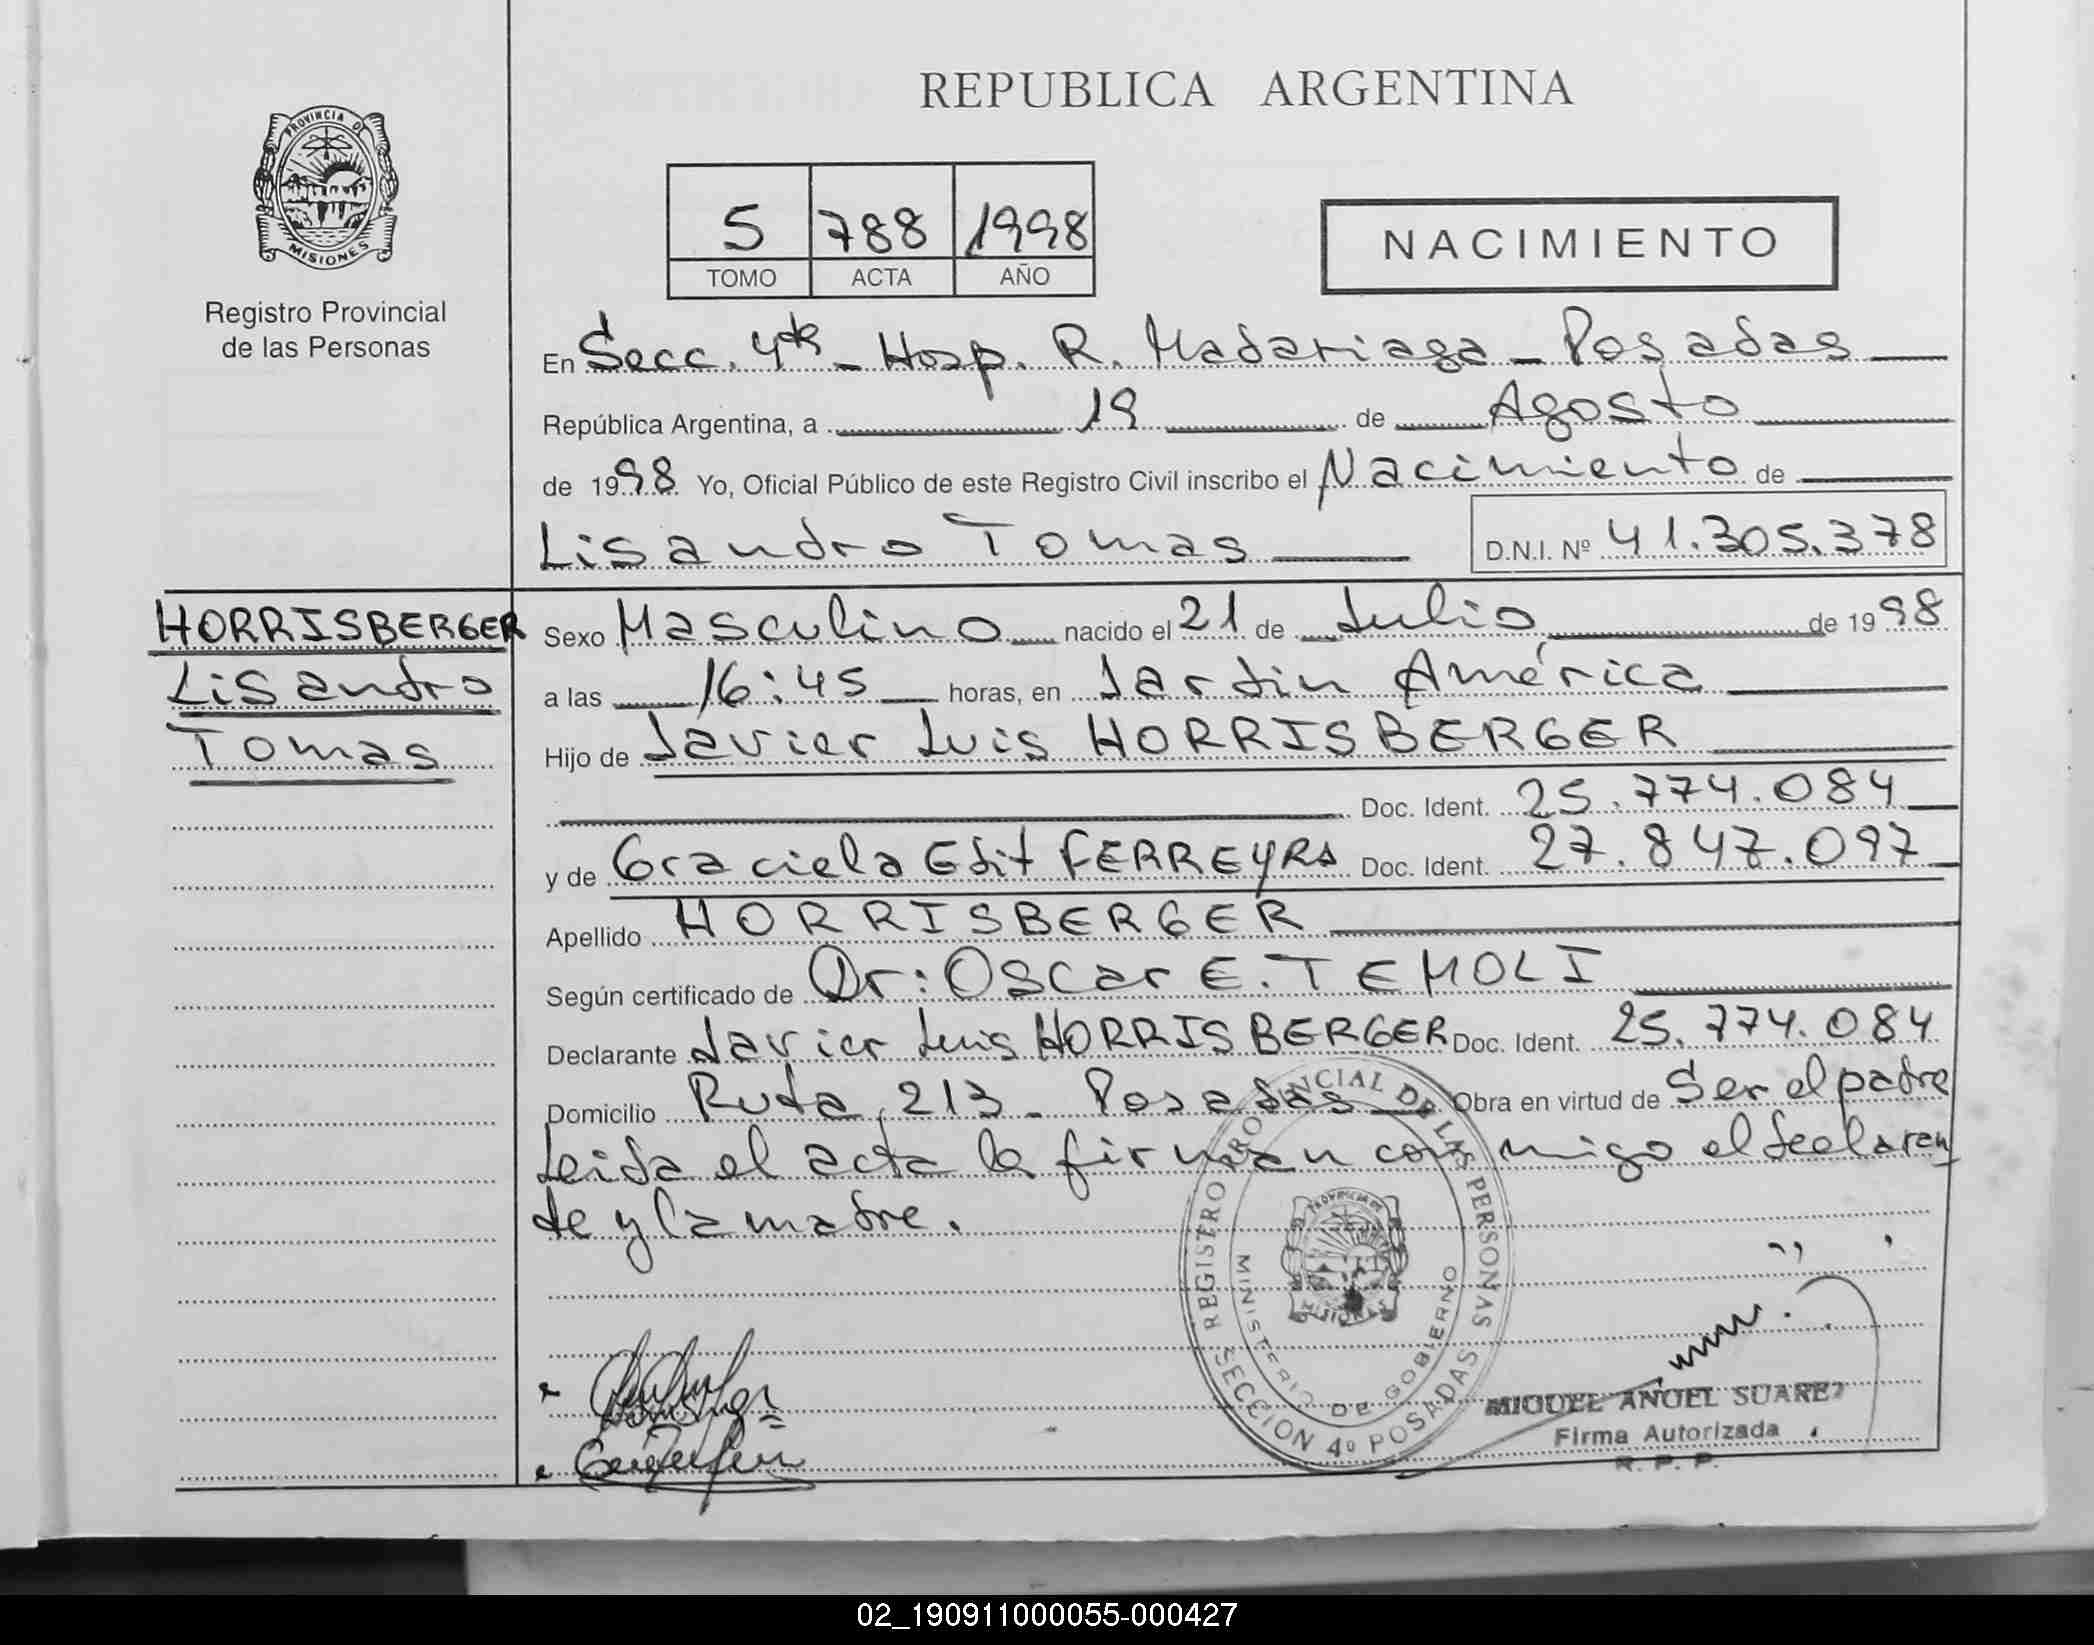 REPUBLICA ARGENTINA
PROVINCIA DE
MISIONES
Registro Provincial
de las Personas
5 788 1998
TOMO ACTA AÑO
NACIMIENTO
En Secc. 4ta - Hosp. R. Madariaga - Posadas
República Argentina, a 19 de Agosto
de 1998 Yo, Oficial Público de este Registro Civil inscribo el Nacimiento de
Lisandro Tomas D.N.I. Nº 41.305.378
HORRISBERGER
Lisandro
Tomas
Sexo Masculino nacido el 21 de Julio de 1998
a las 16:45 horas, en Jardin América
Hijo de Javier Luis HORRISBERGER
Doc. Ident. 25.774.084
y de Graciela Edit FERREYRA Doc. Ident. 27.847.097
Apellido HORRISBERGER
Según certificado de Dr: Oscar E. TEMOLI
Declarante Javier Luis HORRISBERGER Doc. Ident. 25.774.084
Domicilio Ruta 213 - Posadas Obra en virtud de Ser el padre
Leida el acta la firman conmigo el declaran
te y la madre.
REGISTRO PROVINCIAL DE LAS PERSONAS
MINISTERIO DE GOBIERNO
SECCION 4º POSADAS
MIGUEL ANGEL SUAREZ
Firma Autorizada
R. P. P.
02_190911000055-000427